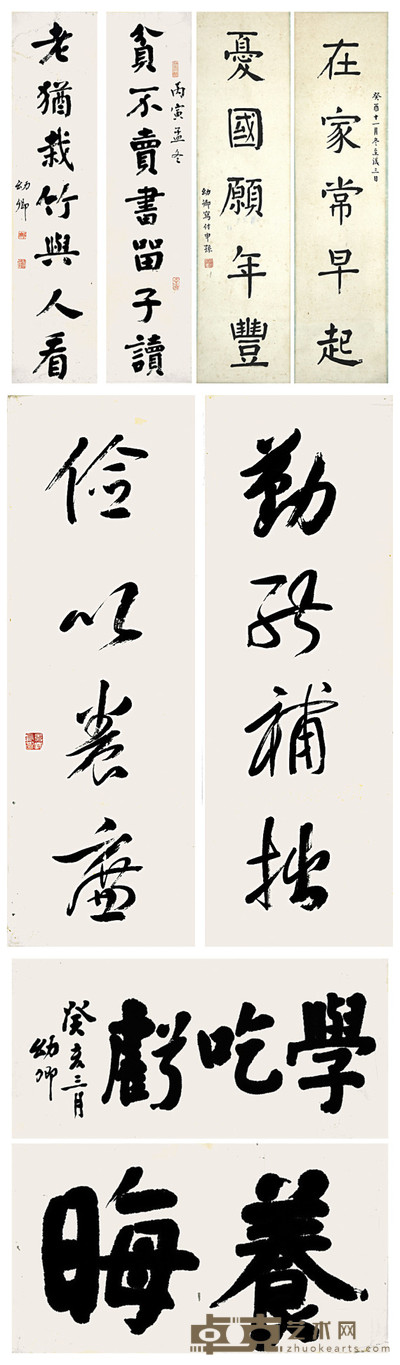 癸酉十一月冬至後三日
在家常早起
憂國願年豐
幼卿寫付申孫
丙寅孟冬
貧不賣書留子讀
老猶栽竹與人看
幼卿
勤能補拙
儉以養廉
學吃虧
癸亥三月
幼卿
養晦
卓克艺术网
zhuokearts.com